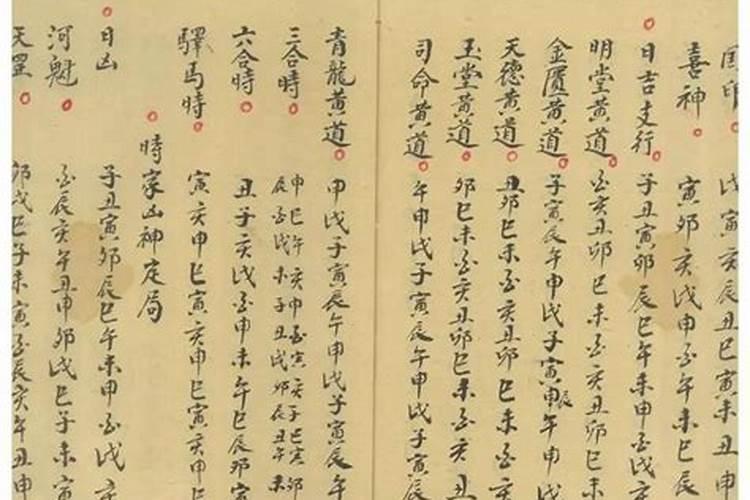 國印 戌寅亥辰丑巳寅未丑
喜神 寅卯亥戌申酉午未巳辰
日吉支行 子丑寅卯辰巳午未申酉戌亥
明堂黃道 酉亥丑卯巳未酉亥丑卯巳未
金匱黃道 子寅辰午申戌子寅辰申午
天德黃道 丑卯巳未酉亥丑卯巳未酉
玉堂黃道 卯巳未酉亥丑卯巳未酉亥丑
司命黃道 午申戌子寅辰午申戌子寅辰
青龍黃道 申戌子寅辰午申戌子寅辰午
三合時 申巳午亥申酉寅亥子巳寅卯
辰酉戌未子丑戌卯辰丑午未
六合時 丑子亥戌酉申未午巳辰卯寅
驛馬時 寅亥申巳寅亥申巳寅亥申巳
時家凶神定局
日凶 子丑寅卯辰巳午未申酉戌亥
河魁 酉辰亥午丑申卯戌巳子未寅
天罡 卯戌巳子未寅酉辰亥午丑申